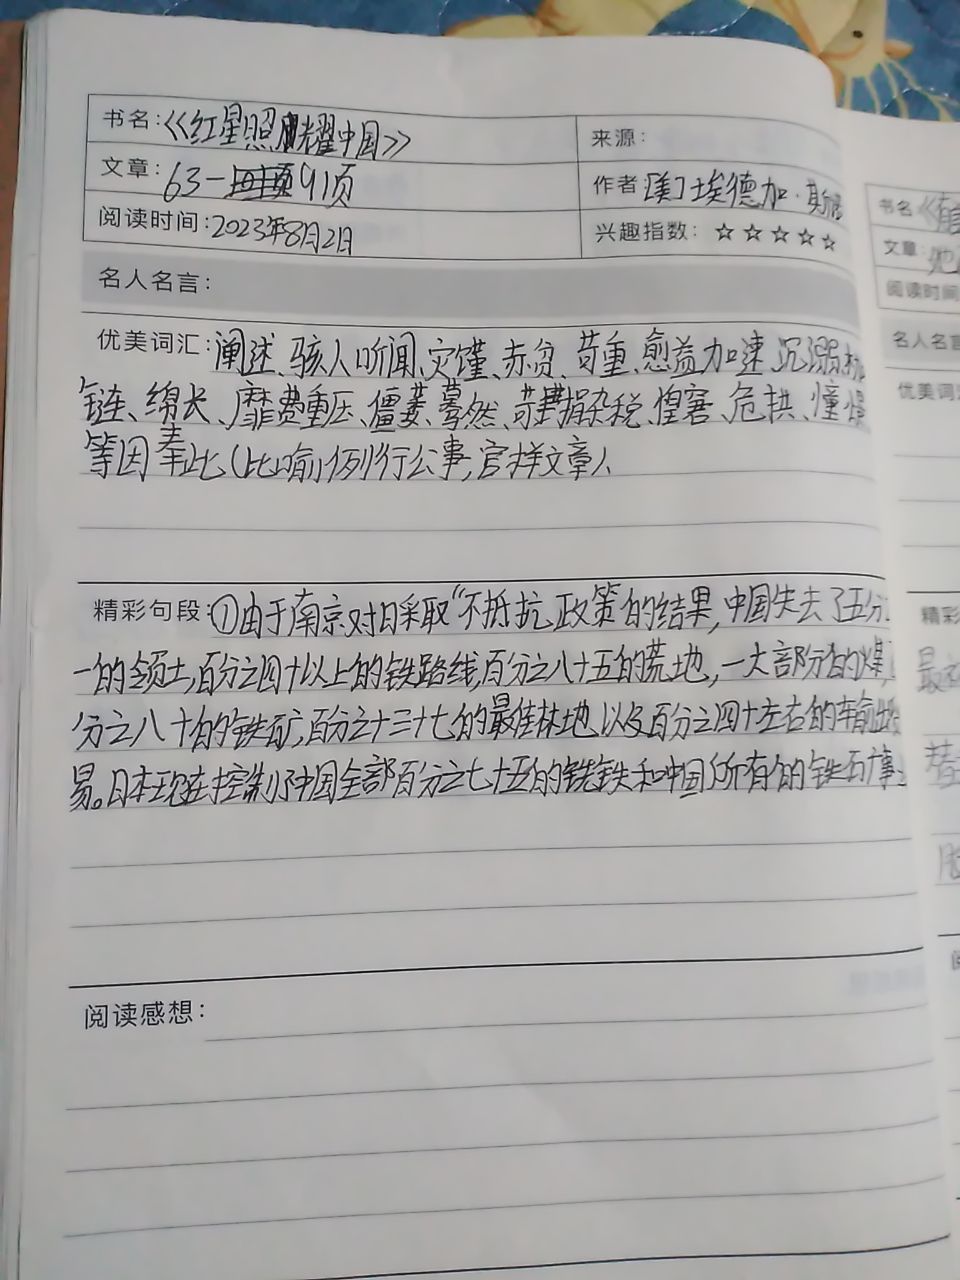 书名：《红星照耀中国》
来源：
文章：63—91页
作者 [美]埃德加·斯诺
阅读时间：2023年8月2日
兴趣指数：☆☆☆☆☆
名人名言：
优美词汇：阐述、骇人听闻、灾馑、赤贫、苛重、愈益加速、沉溺、
链、绵长、靡费重压、僵萎、蓦然、苛捐杂税、惶窘、危拱、憧憬
等因奉此（比喻例行公事，官样文章）
精彩句段：①由于南京对日采取“不抵抗政策的结果，中国失去了五分之
一的领土，百分之四十以上的铁路线，百分之八十五的荒地，一大部分的煤，
分之八十的铁矿，百分之三十七的最佳林地以及百分之四十左右的输出
易。日本现在控制了中国全部百分之七十五的铣铁和中国所有的铁
阅读感想：
书名《
文章：
阅读时间
名人名言
优美词
精彩
最